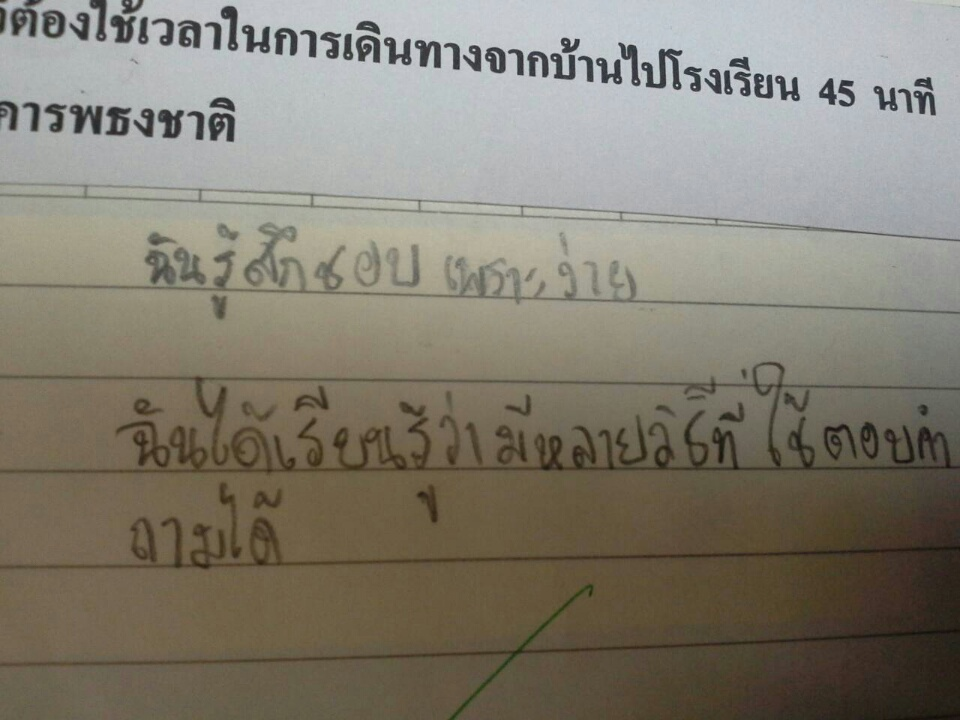 ต้องใช้เวลาในการเดินทางจากบ้านไปโรงเรียน 45 นาที
คารพธงชาติ
ฉันรู้สึกชอบ เพราะง่าย
ฉันได้เรียนรู้ว่ามีหลายวิธีที่ใช้ตอบคำ
ถามได้